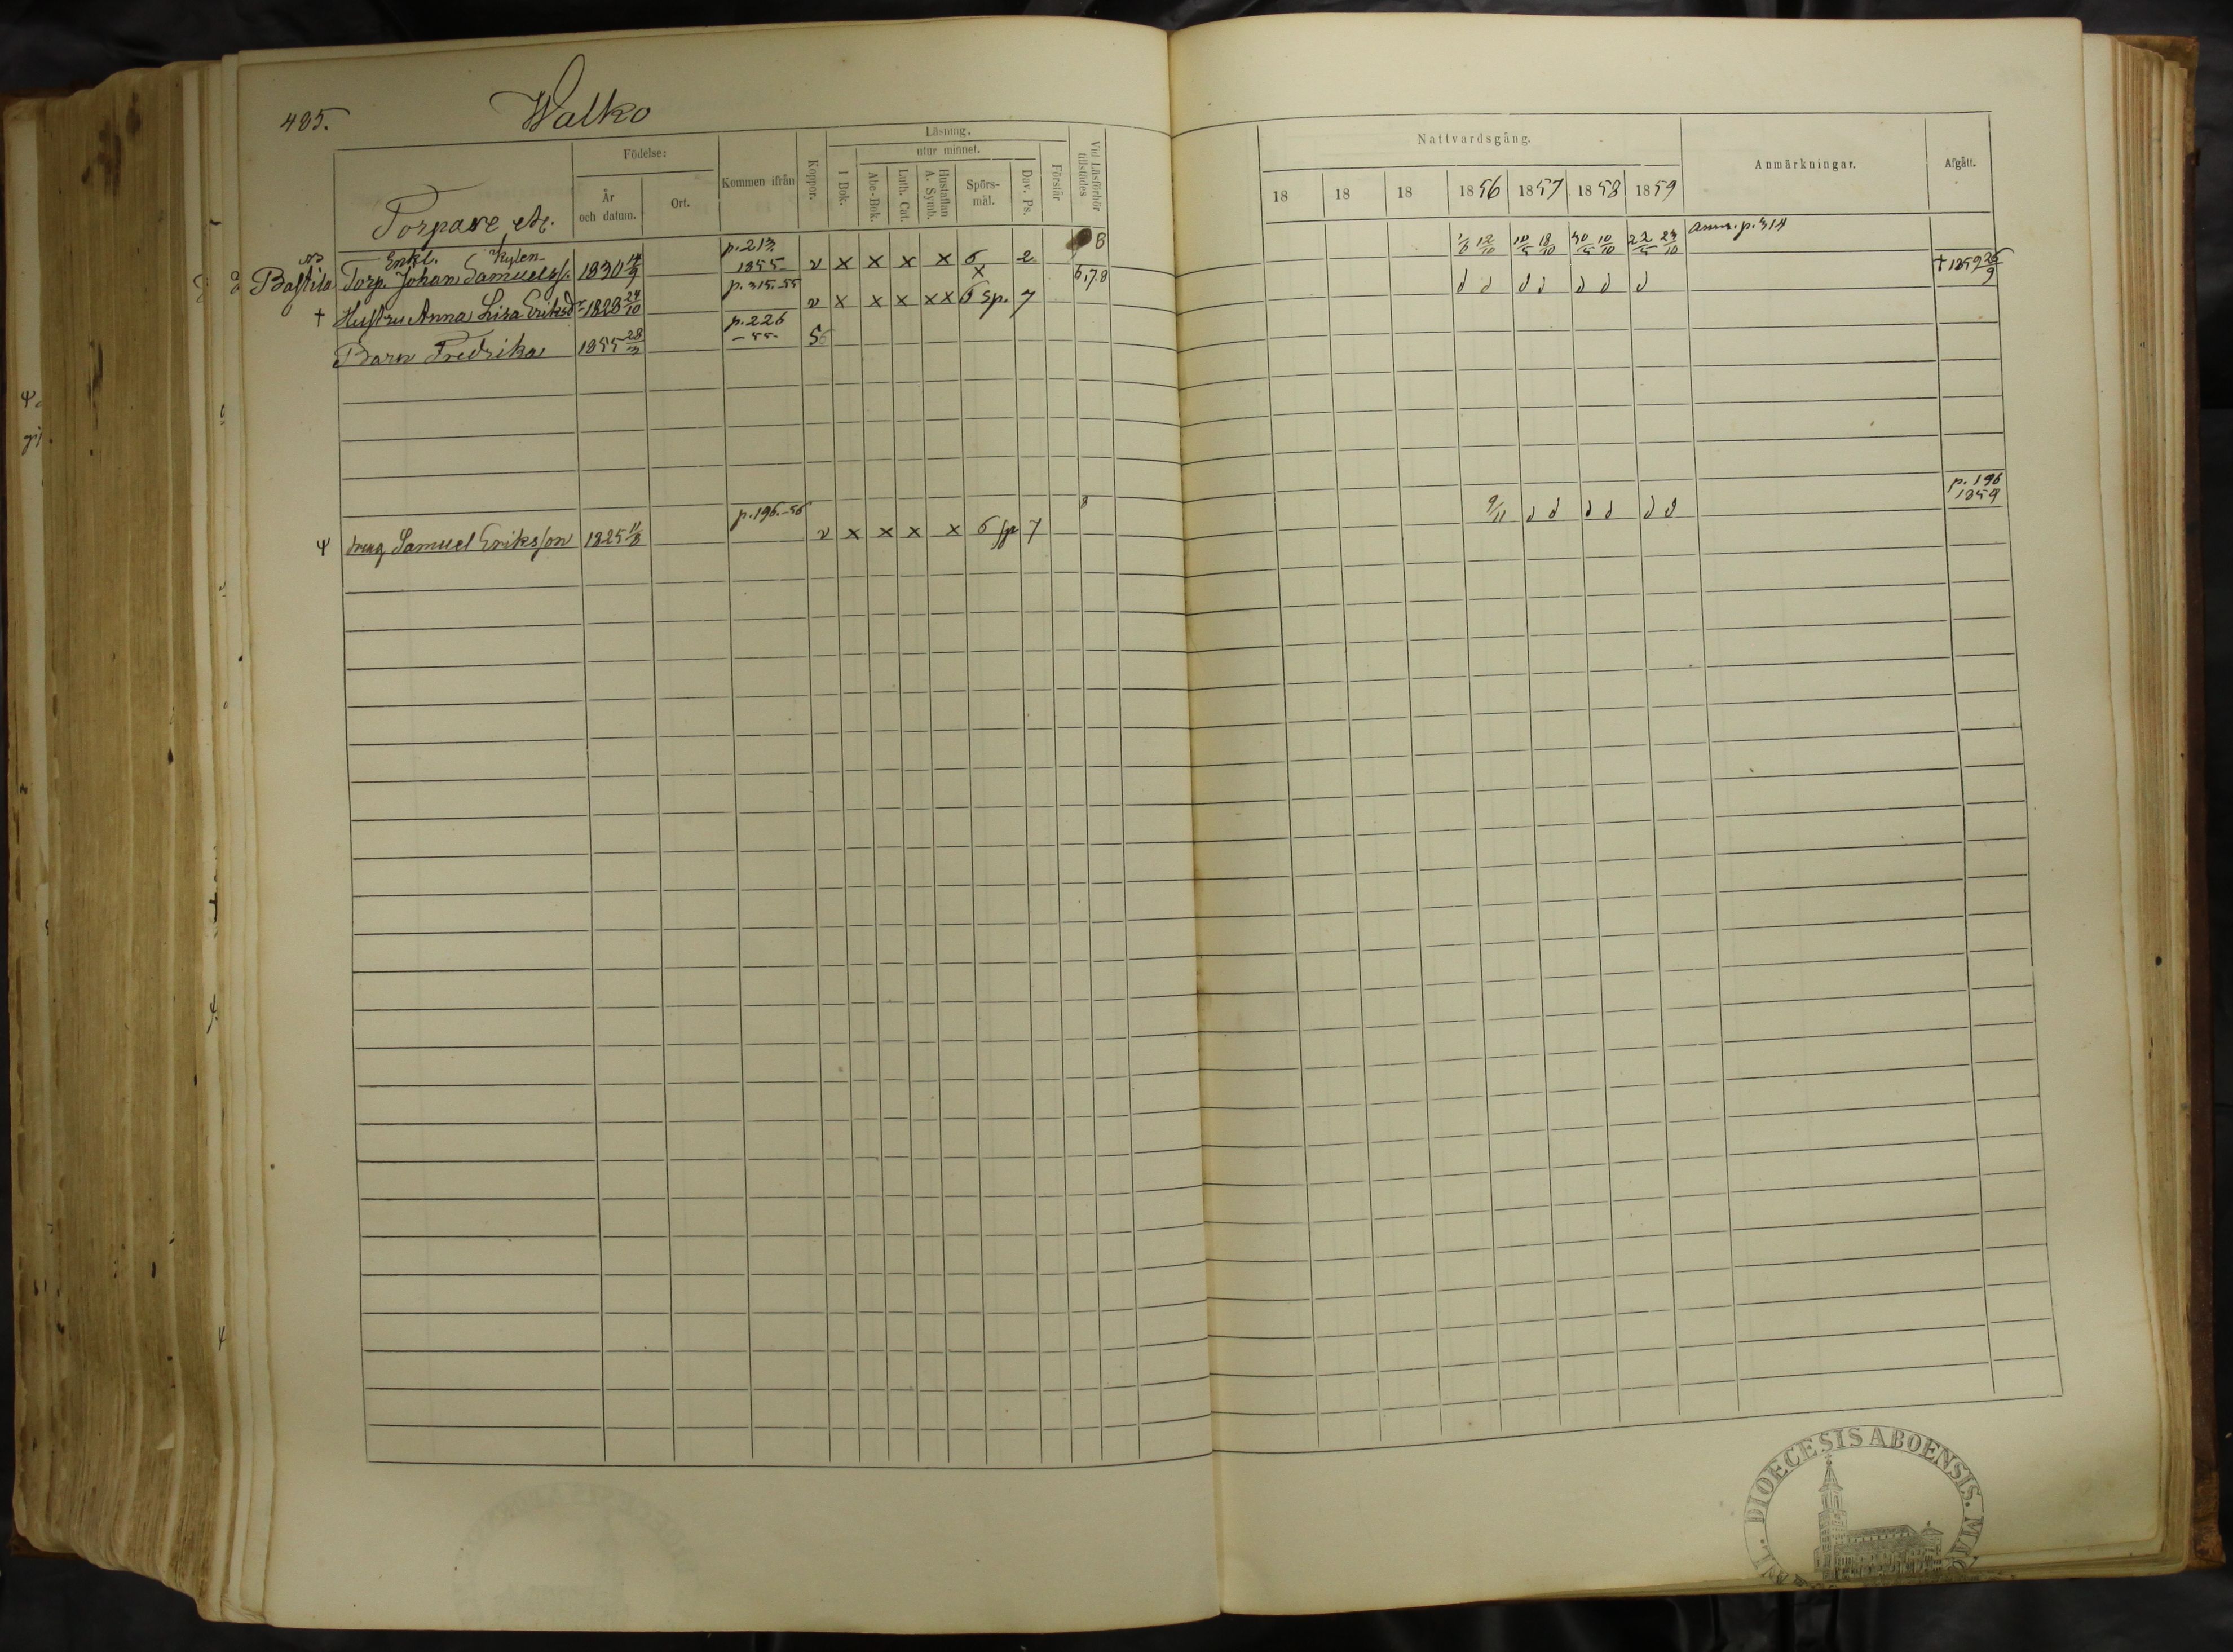 485.
Walko
Torpare etc.
Födelse:
År och datum.
Ort.
Kommen ifrån
Koppor.
Läsning.
I Bok.
utur minnet.
Abc-Bok.
Luth. Cat.
Hustaflan A. Symb.
Spörs-mål.
Dav. Ps.
Förstår
Vid Läsförhör tillstädes
Nattvardsgång.
18 18 18 1856 1857 1858 1859
Anmärkningar.
Afgått.
Enkl.
Bastila Torp. Johan Samuelss. 1830 14/9 p. 213 1855 v x x x x 6 2 8 1/6 12/10 10/5 18/10 30/5 10/10 22/5 23/10 Anm. p. 314
† Hustru Anna Lisa Eriksdr 1828 24/10 p. 315.-55 v x x x x x 6 sp. 7 6,7.8 d d d d d d d † 1859 26/9
Barn Fredrika 1855 28/3 p. 226 -55-
Ψ dreng Samuel Eriksson 1825 11/8 p. 196.-56 v x x x x 6 sp 7 8 9/11 d d d d d d p. 196 1859
DIOECESIS ABOENSIS.